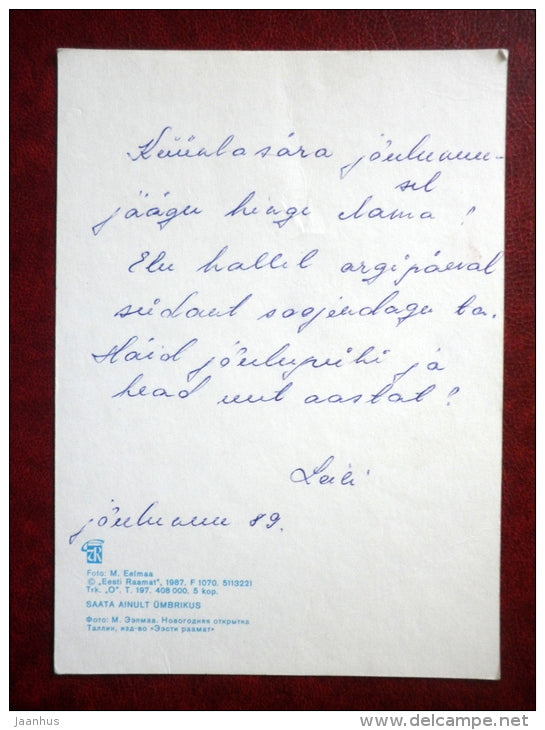 Küünlasära jõulukuu-
sel
jäägu hinge Sama!
Elu hallil argipäeval
südant soojendagu ta.
Häid jõulupühi ja
head uut aastat!
Leili
jõulukuu 89.
Foto: M. Eelmaa
© „Eesti Raamat", 1987. F 1070. 5113221
Trk. „O". T. 197. 408 000. 5 kop.
SAATA AINULT ÜMBRIKUS
Фото: М. Ээлмаа. Новогодняя открытка
Таллин, изд-во «Ээсти раамат»
jaanhus
www.delcampe.net